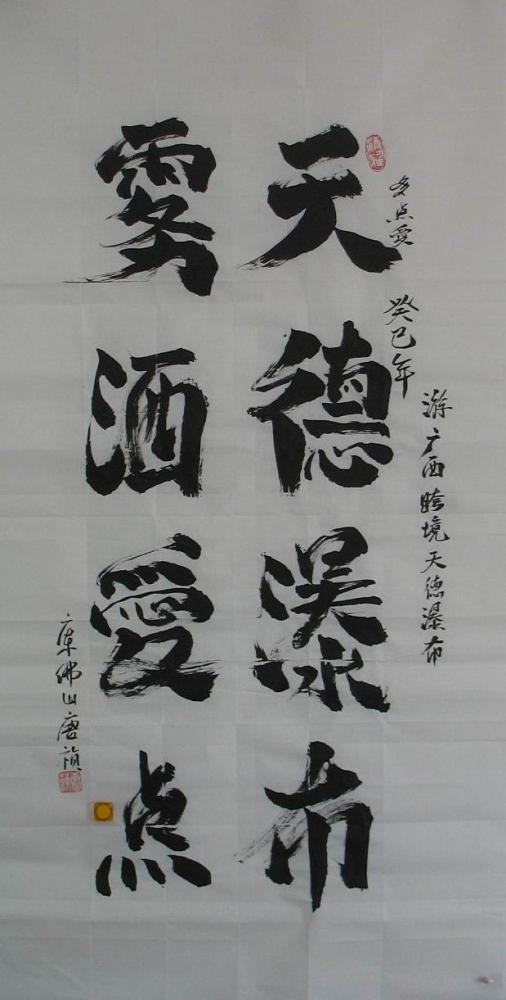 多点愛
癸巳年
游广西跨境天德瀑布
天德瀑布
雾洒愛点
广东佛山唐祯